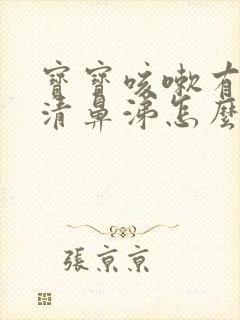 寶寶咳嗽有
清鼻涕怎麼
張京京